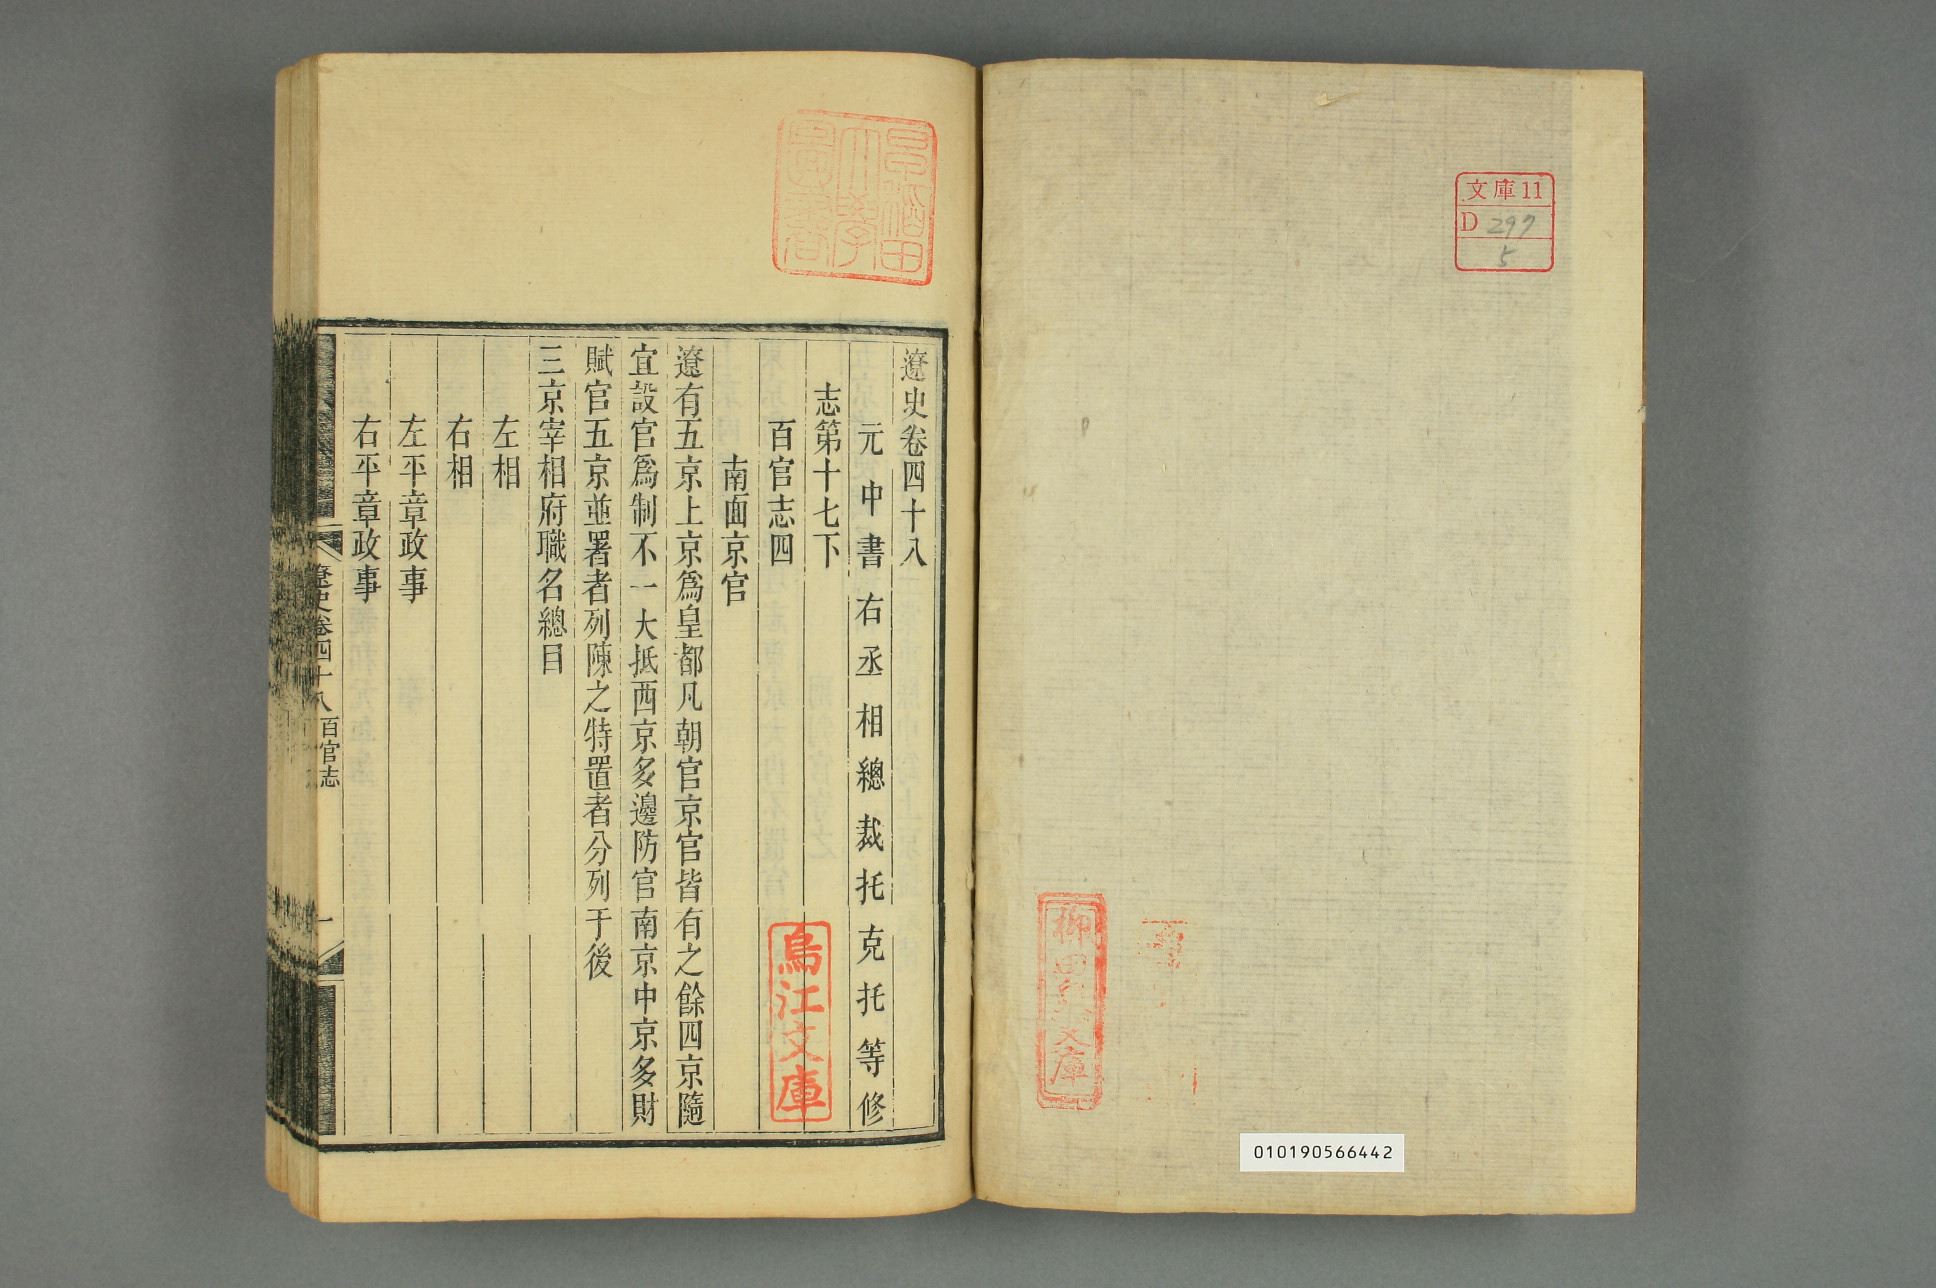 文庫11
D 297
5
010190566442
遼史卷四十八
元中書右丞相總裁托克托等修
志第十七下
百官志四
南面京官
遼有五京上京爲皇都凡朝官京官皆有之餘四京隨
宜設官爲制不一大抵西京多邊防官南京中京多財
賦官五京並置者列陳之特置者分列于後
三京宰相府職名總目
左相
右相
左平章政事
右平章政事
遼史卷四十八 百官志
一
早稻田大學圖書
烏江文庫
柳田泉文庫